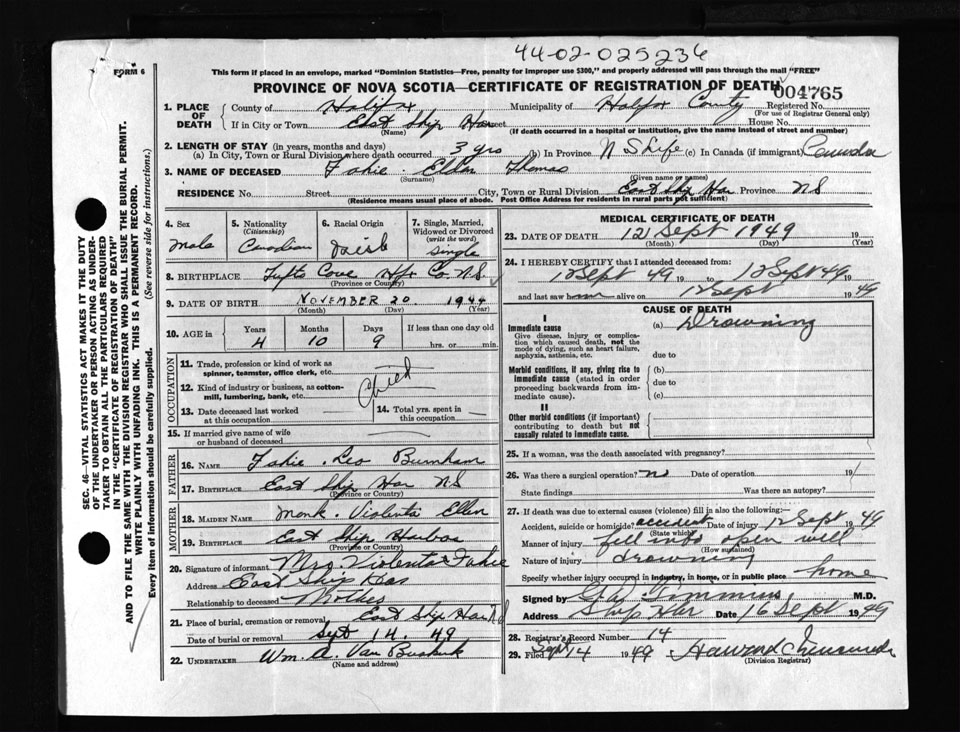 44-02-025236
FORM 6
This form if placed in an envelope, marked "Dominion Statistics—Free, penalty for improper use $300," and properly addressed will pass through the mail "FREE"
PROVINCE OF NOVA SCOTIA—CERTIFICATE OF REGISTRATION OF DEATH
004765
1. PLACE OF DEATH
County of Halifax Municipality of Halifax County Registered No.
(For use of Registrar General only)
If in City or Town East Ship Har Street House No.
(Name) (If death occurred in a hospital or institution, give the name instead of street and number)
2. LENGTH OF STAY (in years, months and days)
(a) In City, Town or Rural Division where death occurred 3 yrs (b) In Province N S Life (c) In Canada (if immigrant) Canada
3. NAME OF DECEASED Fahie Eldon Thomas
(Surname) (Given name or names)
RESIDENCE No. Street City, Town or Rural Division East Ship Har Province NS
(Residence means usual place of abode. Post Office Address for residents in rural parts not sufficient)
4. Sex
Male
5. Nationality (Citizenship)
Canadian
6. Racial Origin
7. Single, Married, Widowed or Divorced (write the word)
Single
8. BIRTHPLACE Tufts Cove Hfx Co. N.S.
(Province or Country)
9. DATE OF BIRTH November 20 1944
(Month) (Day) (Year)
10. AGE in Years Months Days If less than one day old
4 10 9 hrs. or min.
OCCUPATION
11. Trade, profession or kind of work as spinner, teamster, office clerk, etc.
12. Kind of industry or business, as cotton-mill, lumbering, bank, etc.
Child
13. Date deceased last worked at this occupation
14. Total yrs. spent in this occupation
15. If married give name of wife or husband of deceased
FATHER
16. NAME Fahie Leo Burnham
17. BIRTHPLACE East Ship Har NS
(Province or Country)
MOTHER
18. MAIDEN NAME Monk Violenta Ellen
19. BIRTHPLACE East Ship Harbor
(Province or Country)
20. Signature of informant Mrs Violenta Fahie
Address East Ship Har
Relationship to deceased Mother
21. Place of burial, cremation or removal East Ship Har NS
Date of burial or removal Sept 14. 49
22. UNDERTAKER Wm. A. Van Buskirk
(Name and address)
MEDICAL CERTIFICATE OF DEATH
23. DATE OF DEATH 12 Sept 1949 19
(Month) (Day) (Year)
24. I HEREBY CERTIFY that I attended deceased from:
12 Sept 49 19 to 12 Sept 49 19
and last saw h alive on 12 Sept 1949
CAUSE OF DEATH
I
Immediate cause
Give disease, injury or complication which caused death, not the mode of dying, such as heart failure, asphyxia, asthenia, etc.
(a) Drowning
due to
Morbid conditions, if any, giving rise to immediate cause (stated in order proceeding backwards from immediate cause).
(b)
due to
(c)
II
Other morbid conditions (if important) contributing to death but not causally related to immediate cause.
25. If a woman, was the death associated with pregnancy?
26. Was there a surgical operation? no Date of operation 19
State findings Was there an autopsy?
27. If death was due to external causes (violence) fill in also the following:
Accident, suicide or homicide? accident Date of injury 12 Sept 1949
(State which)
Manner of injury fell into open well
(How sustained)
Nature of injury drowning
Specify whether injury occurred in industry, in home, or in public place home
Signed M.D.
Address Ship Hbr Date 16 Sept 1949
28. Registrar's Record Number 14
29. Filed Sept 14 1949
(Division Registrar)
SEC. 46—VITAL STATISTICS ACT MAKES IT THE DUTY
OF THE UNDERTAKER OR PERSON ACTING AS UNDER-
TAKER TO OBTAIN ALL THE PARTICULARS REQUIRED
IN THE "CERTIFICATE OF REGISTRATION OF DEATH"
AND TO FILE THE SAME WITH THE DIVISION REGISTRAR WHO SHALL ISSUE THE BURIAL PERMIT.
WRITE PLAINLY WITH UNFADING INK. THIS IS A PERMANENT RECORD.
Every item of information should be carefully supplied. (See reverse side for instructions.)